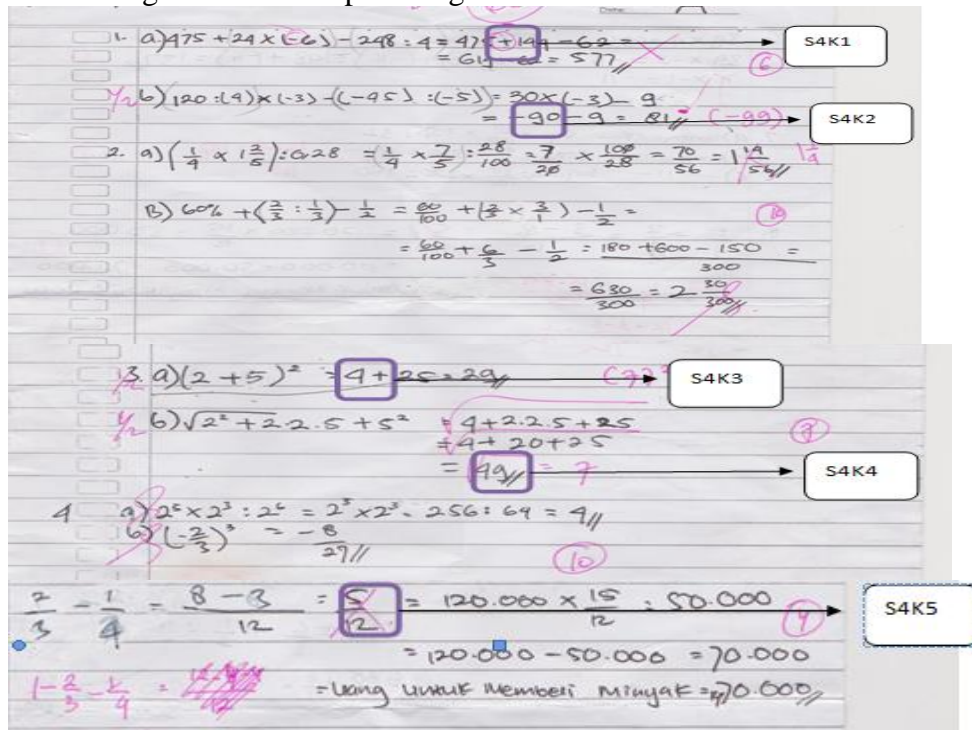 1. a) 475 + 24 x (-6) - 248 : 4 = 475 + 144 - 62 = S4K1
= 619 - 62 = 577 6
1/2 b) 120 : (4) x (-3) - (-45) : (-5) = 30 x (-3) - 9
= -90 - 9 = 81 (-99) S4K2
2. a) (1/4 x 1 2/5) : 0,28 = (1/4 x 7/5) : 28/100 = 7/20 x 100/28 = 70/56 = 1 14/56 1 1/4
B) 60% + (2/3 : 1/3) - 1/2 = 60/100 + (2/3 x 3/1) - 1/2 = 10
= 60/100 + 6/3 - 1/2 = 180 + 600 - 150 / 300 =
= 630/300 = 2 30/300
1/2 3. a) (2 + 5)² = 4 + 25 = 29 S4K3
1/2 b) √2² + 2.2.5 + 5² = 4 + 2.2.5 + 25
= 4 + 20 + 25
= 49 = 7 S4K4
4 a) x 2³ : 2⁶ = x 2³ = 256 : 64 = 4
b) (-2/3)³ = -8/27
10
2/3 - 1/4 = 8 - 3 / 12 = 5/12 = 120.000 x 15/12 : 50.000 S4K5
= 120.000 - 50.000 = 70.000
1 - 2/3 - 1/4 = = Uang untuk membeli Minyak = 70.000